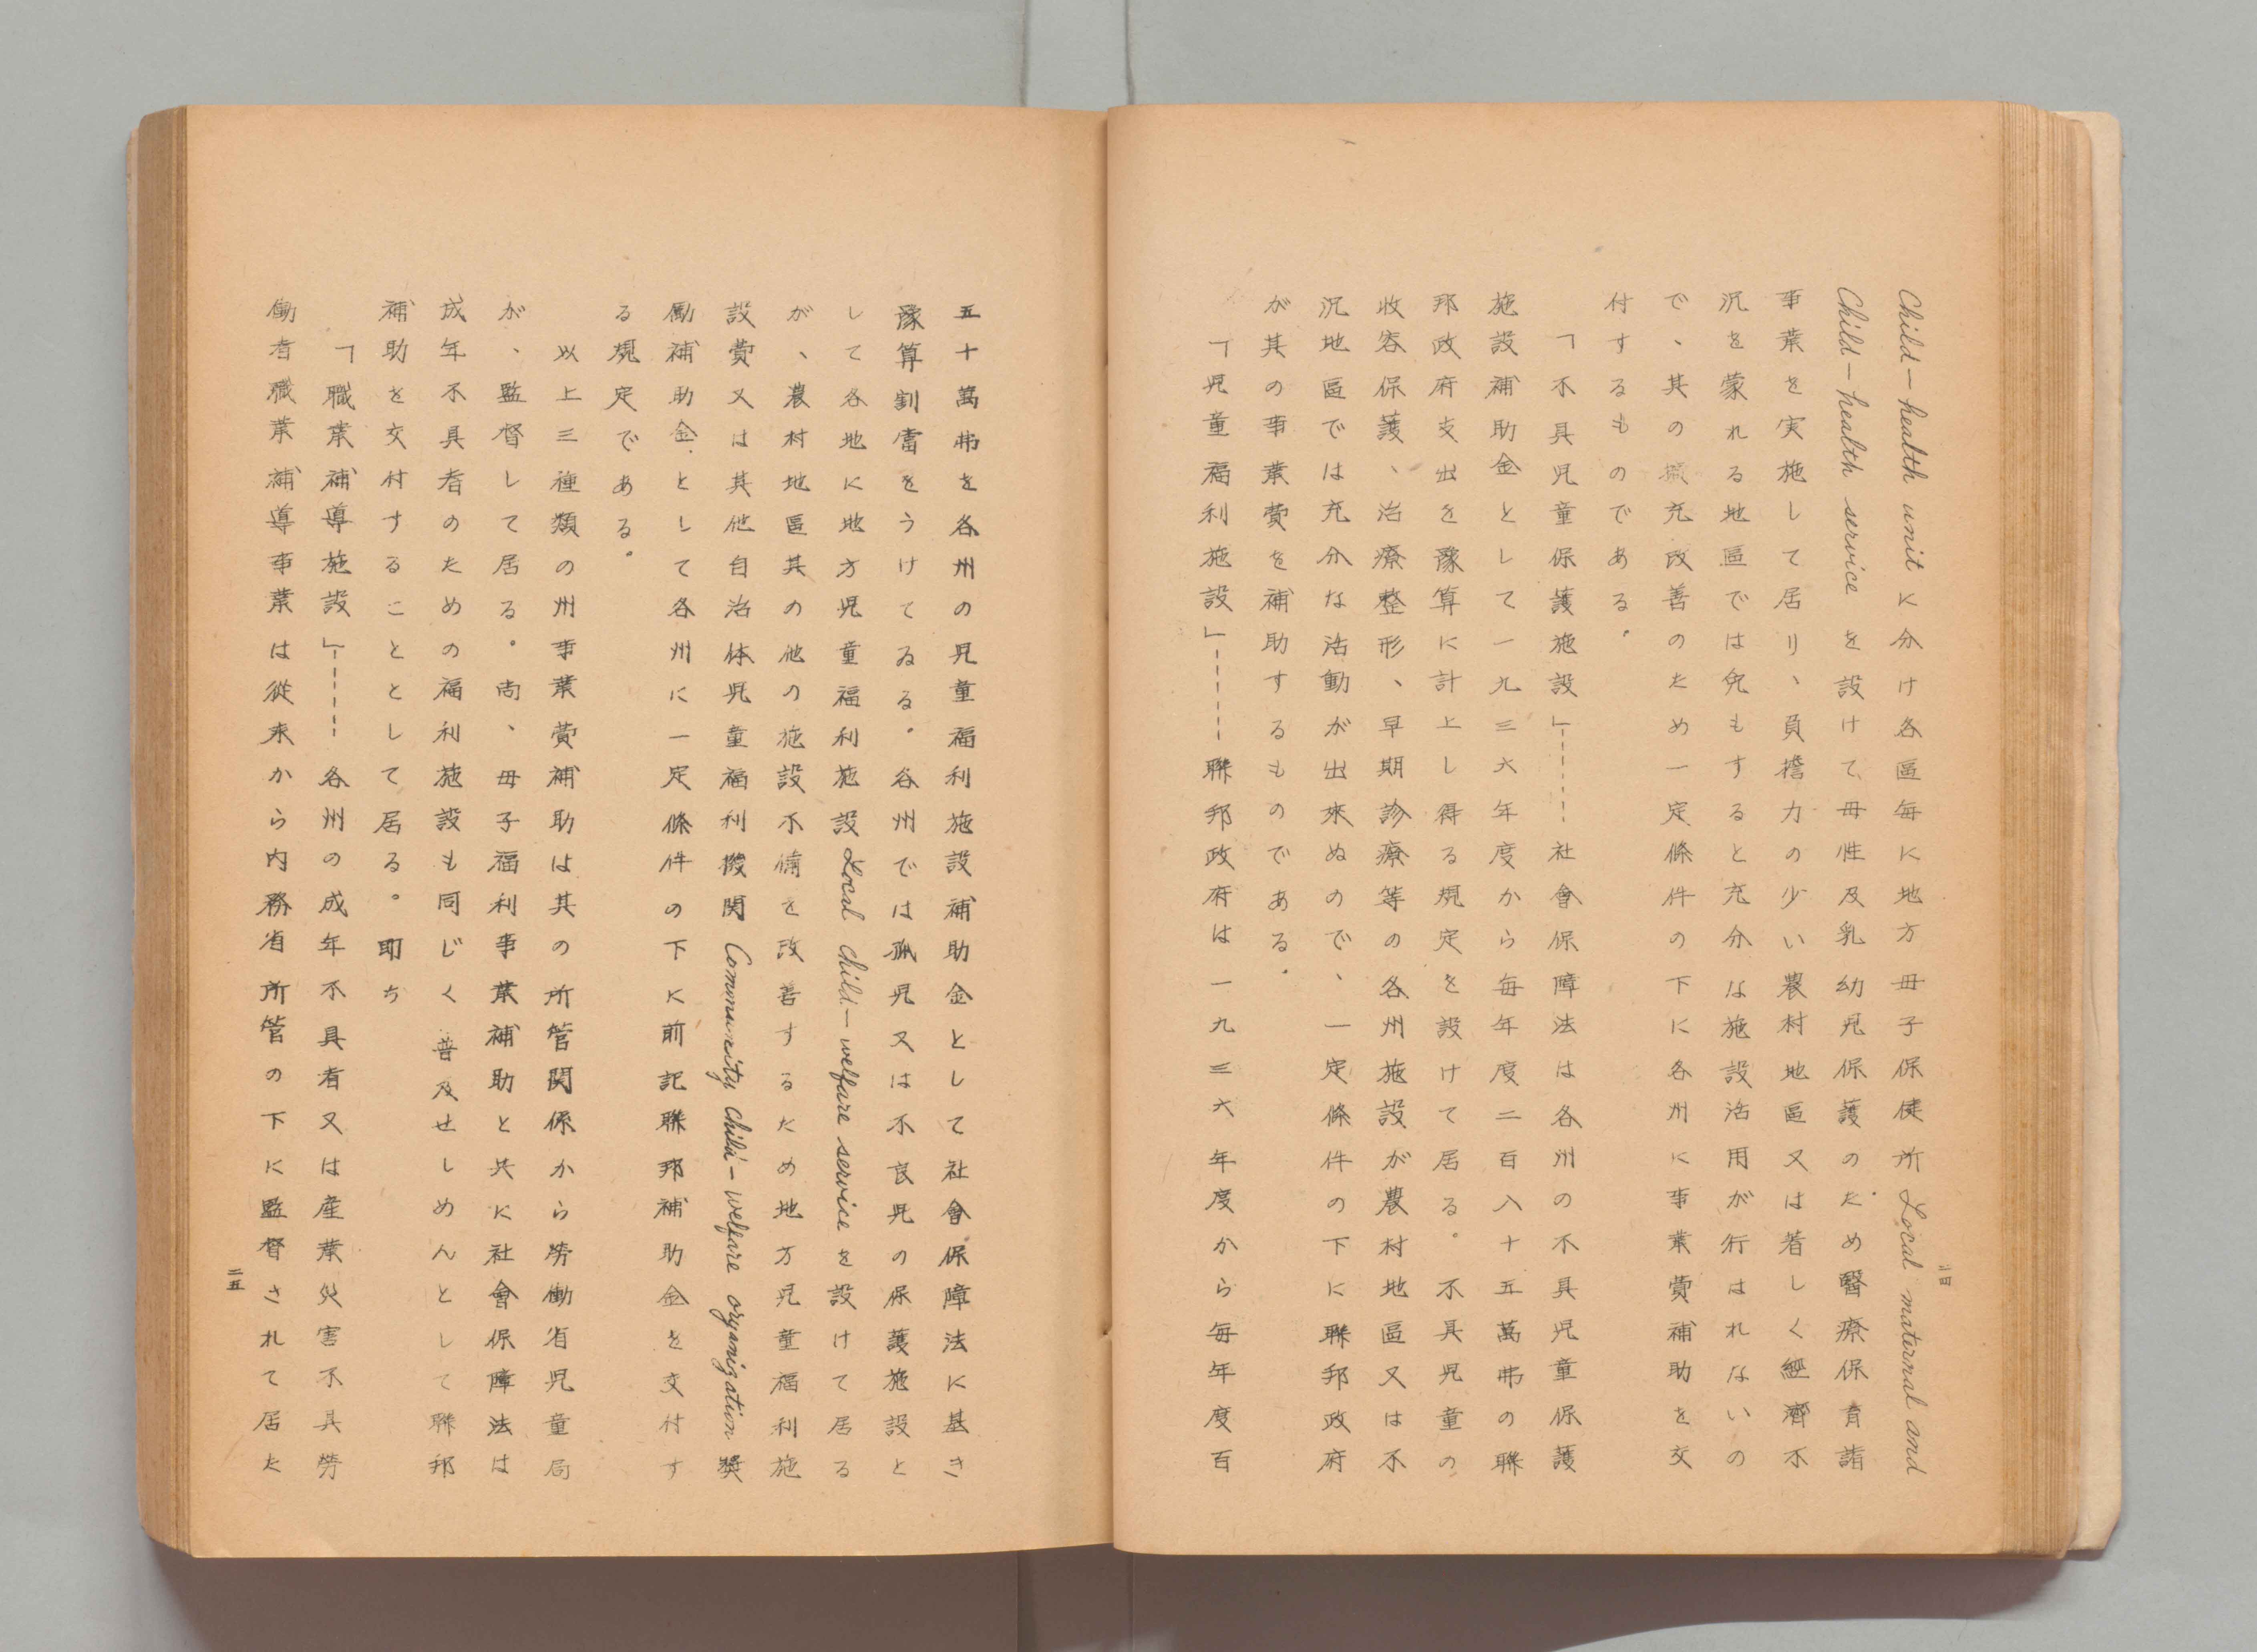 Child-health unit に分け各區毎に地方母子保健所 Local maternal and
Child-health service を設けて母性及乳幼児保護のため醫療保育諸
事業を実施して居り、負擔力の少い農村地區又は著しく經濟不
況を蒙れる地區では兔もすると充分な施設活用が行はれないの
で、其の擴充改善のため一定條件の下に各州に事業費補助を交
付するものである。
「不具児童保護施設」------社會保障法は各州の不具児童保護
施設補助金として一九三六年度から毎年度二百八十五萬弗の聯
邦政府支出を豫算に計上し得る規定を設けて居る。不具児童の
收容保護、治療整形、早期診療等の各州施設が農村地區又は不
況地區では充分な活動が出來ぬので、一定條件の下に聯邦政府
が其の事業費を補助するものである。
「児童福利施設」------聯邦政府は一九三六年度から毎年度百
二四
五十萬弗を各州の児童福利施設補助金として社會保障法に基き
豫算割當をうけてゐる。各州では孤児又は不良児の保護施設と
して各地に地方児童福利施設 Local child-welfare service を設けて居る
が、農村地區其の他の施設不備を改善するため地方児童福利施
設費又は其他自治体児童福利機関 Community child-welfare organization 奬
勵補助金として各州に一定條件の下に前記聯邦補助金を交付す
る規定である。
以上三種類の州事業費補助は其の所管関係から勞働省児童局
が、監督して居る。尚、母子福利事業補助と共に社會保障法は
成年不具者のための福利施設も同じく普及せしめんとして聯邦
補助を交付することとして居る。即ち
「職業補導施設」------各州の成年不具者又は産業災害不具勞
働者職業補導事業は從来から内務省所管の下に監督されて居た
二五